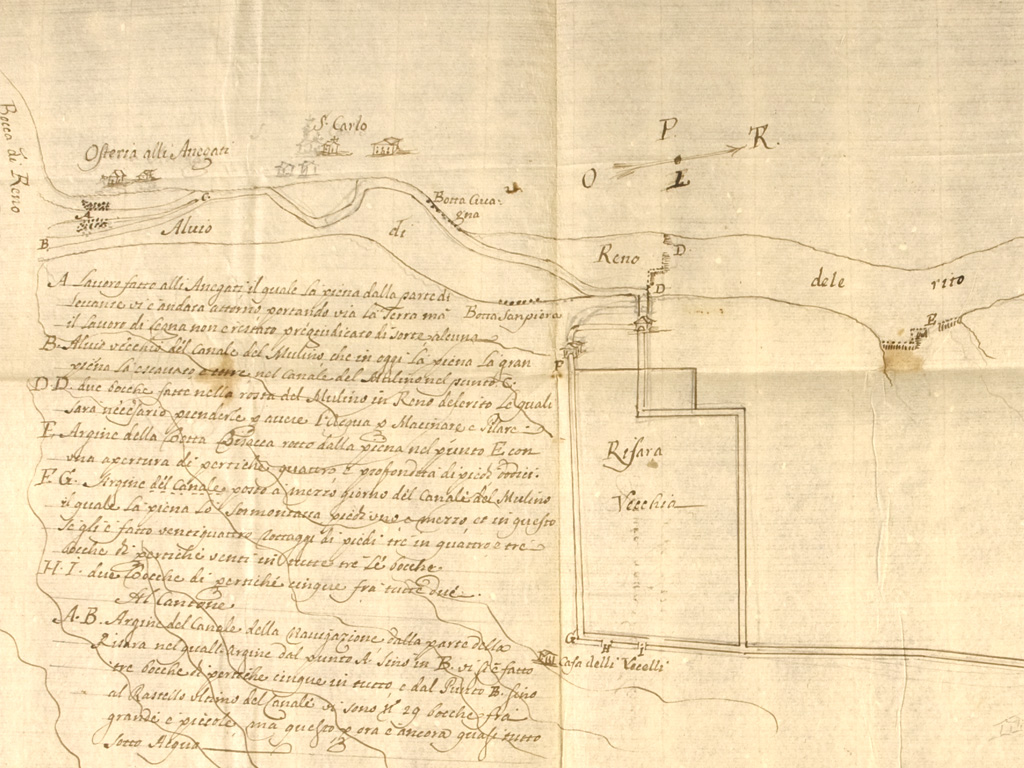 Bocca di Reno
Osteria alli Anegati
S. Carlo
P
O
R.
L
A
C.
B.
Alvio
di
Reno
dele
rito
Botta
gna
D.
D
E
Botta Sanpiera
F
A Lavoro fatto alli Anegati il quale la piena dalla parte di
levante vi è andata attorno portando via la Terra mà
il Lavoro di Legna non è restato pregiudicato di sorte alcuna
B. Alvio vecchio del Canale del Mulino che in oggi la piena la gran
piena la escavato e corre nel Canale del Mulino nel punto C.
D. D. due bocche fatte nella rosta del Mulino in Reno delerito le quali
sarà necesario prenderle p avere l'Acqua p Macinare e Pilare
E. Argine della Botta rotto dalla piena nel punto E. con
una apertura di pertiche quattro e profondità di piedi dodici.
F. G. Argine del Canale posto a mezzo giorno del Canale del Mulino
il quale la piena Lo à Sormontatta piedi uno e mezzo, et in questo
se gli è fatto ventiquattro di piedi tre in quattro e tre
bocche di pertiche venti in tutte trè Le bocche
H. I. due Bocche di pertiche cinque frà tutte due.
Al Cantone
A. B. Argine del Canale della Navigazione dalla parte della
Risara nel quall'Argine dal punto A. sino in B. vi si è fatto
tre bocche di pertiche cinque in tutto, e dal Punto B. sino
al Rastello Ultimo del Canale vi sono N. 29 bocche frà
grandi e piccole, ma questo p ora è ancora quasi tutto
sotto Acqua
Risara
Vecchia
G
H
I
Casa delli Vecelli